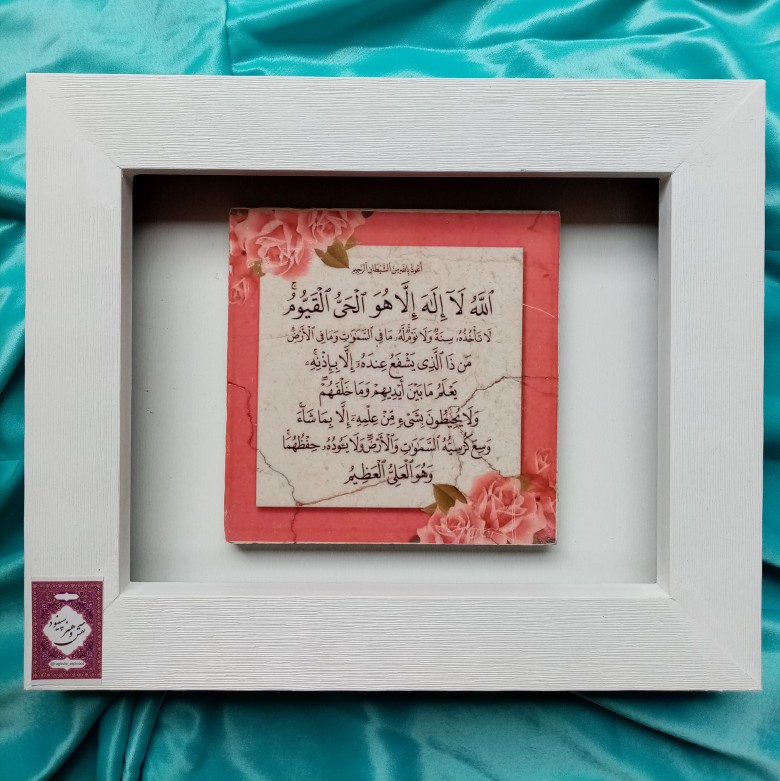 أَعُوذُ بِاللَّهِ مِنَ الشَّيْطَانِ الرَّجِيمِ
ٱللَّهُ لَآ إِلَٰهَ إِلَّا هُوَ ٱلْحَىُّ ٱلْقَيُّومُۚ
لَا تَأْخُذُهُۥ سِنَةٌ وَلَا نَوْمٌۚ لَّهُۥ مَا فِى ٱلسَّمَٰوَٰتِ وَمَا فِى ٱلْأَرْضِۗ
مَن ذَا ٱلَّذِى يَشْفَعُ عِندَهُۥٓ إِلَّا بِإِذْنِهِۦۚ
يَعْلَمُ مَا بَيْنَ أَيْدِيهِمْ وَمَا خَلْفَهُمْۖ
وَلَا يُحِيطُونَ بِشَىْءٍ مِّنْ عِلْمِهِۦٓ إِلَّا بِمَا شَآءَۚ
وَسِعَ كُرْسِيُّهُ ٱلسَّمَٰوَٰتِ وَٱلْأَرْضَۖ وَلَا يَـُٔودُهُۥ حِفْظُهُمَاۚ
وَهُوَ ٱلْعَلِىُّ ٱلْعَظِيمُ
نقش و هنر پسینود